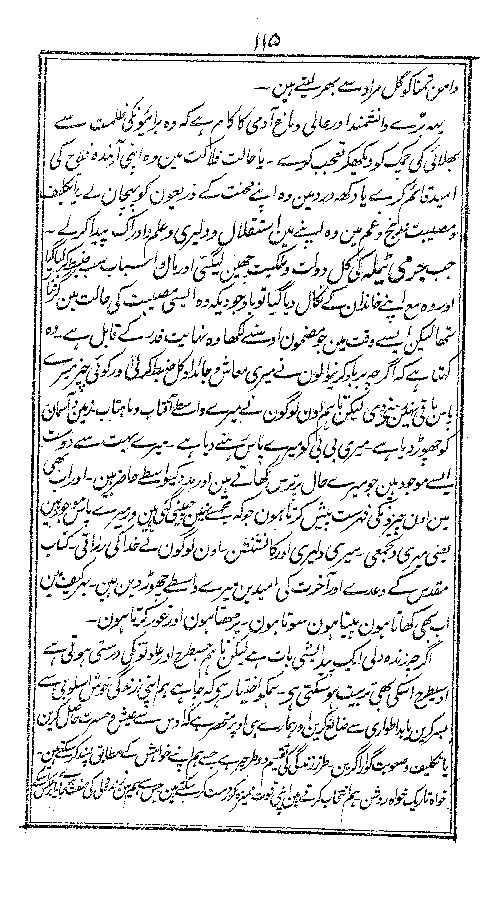 ۱۱۵
دامن تمنا کو گل مراد سے بھر لیتے ہین ۔
یہ بڑے دانشمند اور عالی دماغ آدمی کا کام ہے کہ وہ برائیونکی ظلمت سے
بھلائی کی چمک کو دیکھکر تعجب کرے ۔ یا حالت فلاکت مین وہ اپنی آیندہ فلاح کی
امید قائم کرے یا دکھ درد مین وہ اپنے صحت کے ذریعون کو پہچان لے یا تکلیف
و مصیبت رنج و غم مین وہ اپنے مین استقلال و دلیری و علم و ادراک پیدا کرلے ۔
جب جرمی ٹیلر کی کل دولت و ملکیت چھین لیگئی اور مال اسباب سب ضبط کر لیا گیا
اور وہ مع اپنے خاندان کے نکال دیا گیا تو باوجودیکہ وہ ایسی مصیبت کی حالت مین گرفتار
تھا لیکن ایسے وقت مین جو مضمون اوسنے لکھا وہ نہایت قدر کے قابل ہے ۔ وہ
کہتا ہے کہ اگرچہ برباد کرنیوالون نے میری معاش و جائداد کل ضبط کر لی اور کوئی چیز میرے
پاس باقی نہین چھوڑی لیکن تاہم اون لوگون نے میرے واسطے آفتاب و ماہتاب ۔ زمین و آسمان
کو چھوڑ دیا ہے ۔ میری بی بی کو میرے پاس رہنے دیا ہے ۔ میرے بہت سے دوست
ایسے موجود ہین جو میرے حال پر ترس کھاتے ہین اور مدد کیواسطے حاضر ہین ۔ اور اب بھی
مین اون چیزونکی فہرست پیش کرتا ہون جو کہ مجھسے نہین چھینی گئی ہین اور میرے پاس موجود ہین
یعنی میری دلجمعی ۔ میری دلیری اور کانشنس ۔ اون لوگون نے خدا کی رزاقی ۔ کتاب
مقدس کے وعدے اور آخرت کی امیدین میرے واسطے چھوڑ دین ہین ۔ بہر کیف مین
اب بھی کھاتا ہون پیتا ہون سوتا ہون ۔ پڑھتا ہون اور غور کرتا ہون ۔
اگرچہ زندہ دلی ایک پیدایشی بات ہے لیکن تاہم جسطرح اور عادتونکی درستی ہوتی ہے
اوسیطرح اسکی بھی تربیت ہو سکتی ہی ۔ ہمکو اختیار ہی کہ چاہے ہم اپنی زندگی خوش اسلوبی سے
بسر کرین یا بد اطواری سے ضائع کرین اور ہمارے ہی اوپر منحصر ہے کہ اوس سے عیش و مسرت حاصل کرین
یا تکلیف و صعوبت گوارا کرین ۔ طرز زندگی کی تقسیم دو طرح پر ہے جسے ہم اپنے خواہش کے مطابق پسند کر سکتے ہین ۔
خواہ تاریک خواہ روشن ہم انتخاب کرتے ہین اپنی قوت ممیزہ کو درست کر سکتے ہین جس سے ہمین